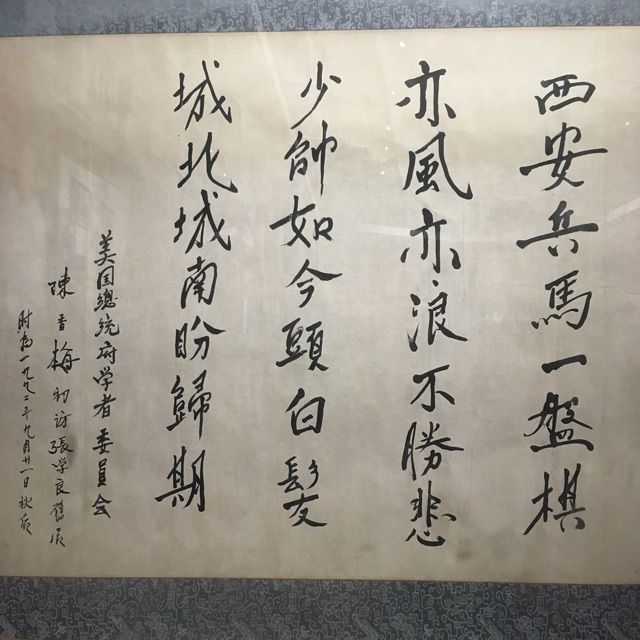 西安兵馬一盤棋
亦風亦浪不勝悲
少帥如今頭白髮
城北城南盼歸期
美国總統府学者委員会
陳香梅初访張学良舊居
时为一九九二年九月廿一日秋后